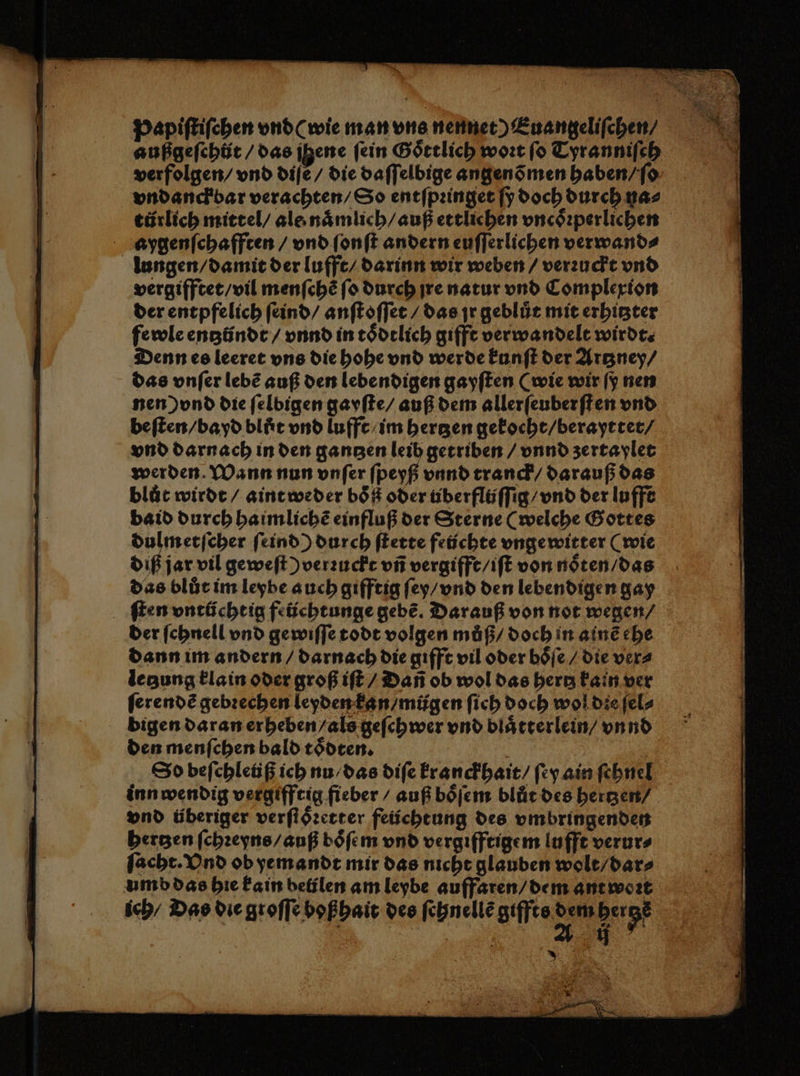 Papiſtiſchen vnd (wie man vns nennet) Euangeliſchen/
außgeſchüt / das jhene ſein Goͤttlich wort ſo Tyranniſch
verfolgen/ vnd diſe / die daſſelbige angenõmen haben/ ſo
vndanckbar verachten/ So entſpringet ſy doch durch na⸗
türlich mittel/ als naͤmlich/ auß ettlichen vncoͤrperlichen
aygenſchafften / vnd ſonſt andern euſſerlichen verwand⸗
lungen/ damit der lufft/ darinn wir weben / verruckt vnd
vergifftet/ vil menſchẽ ſo durch jre natur vnd Complexion
der entpfelich ſeind/ anſtoſſet / das jr gebluͤt mit erhitzter
fewle entzündt / vnnd in toͤdtlich gifft verwandelt wirdt.
Denn es leeret vns die hohe vnd werde kunſt der Artzney/
das vnſer lebẽ auß den lebendigen gayſten (wie wir ſy nen
nen) vnd die ſelbigen gayſte/ auß dem allerſeuberſten vnd
beſten/ bayd bluͤt vnd lufft/ im hertzen gekocht/ berayttet/
vnd darnach in den gantzen leib getriben / vnnd zertaylet
werden. Wann nun vnſer ſpeyß vnnd tranck/ darauß das
bluͤt wirdt / aintweder boͤß oder überflüſſig/ vnd der lufft
baid durch haimlichẽ einfluß der Sterne (welche Gottes
dulmetſcher ſeind) durch ſtette feüchte vngewitter (wie
diß jar vil geweſt) verruckt vñ vergifft/ iſt von noͤten/ das
das bluͤt im leybe auch gifftig ſey/ vnd den lebendigen gay
ſten vntüchtig feüchtunge gebẽ. Darauß von not wegen/
der ſchnell vnd gewiſſe todt volgen muͤß/ doch in ainẽ ehe
dann im andern / darnach die gifft vil oder boͤſe / die ver⸗
letzung klain oder groß iſt / Dañ ob wol das hertz kain ver
ſerendẽ gebrechen leyden kan/ mügen ſich doch wol die ſel⸗
bigen daran erheben/ als geſchwer vnd blaͤtterlein/ vnnd
den menſchen bald toͤdten.
So beſchleüß ich nu/ das diſe kranckhait/ ſey ain ſchnel
innwendig vergifftig fieber / auß boͤſem bluͤt des hertzen/
vnd überiger verſtoͤretter feüchtung des vmbringenden
hertzen ſchreyns/ auß boͤſem vnd vergifftigem lufft verur⸗
ſacht. Vnd ob yemandt mir das nicht glauben wolt/ dar⸗
umb das hie kain beülen am leybe auffaren/ dem antwort
ich/ Das die groſſe boßhait des ſchnellẽ giffts dem hertzẽ
A ij